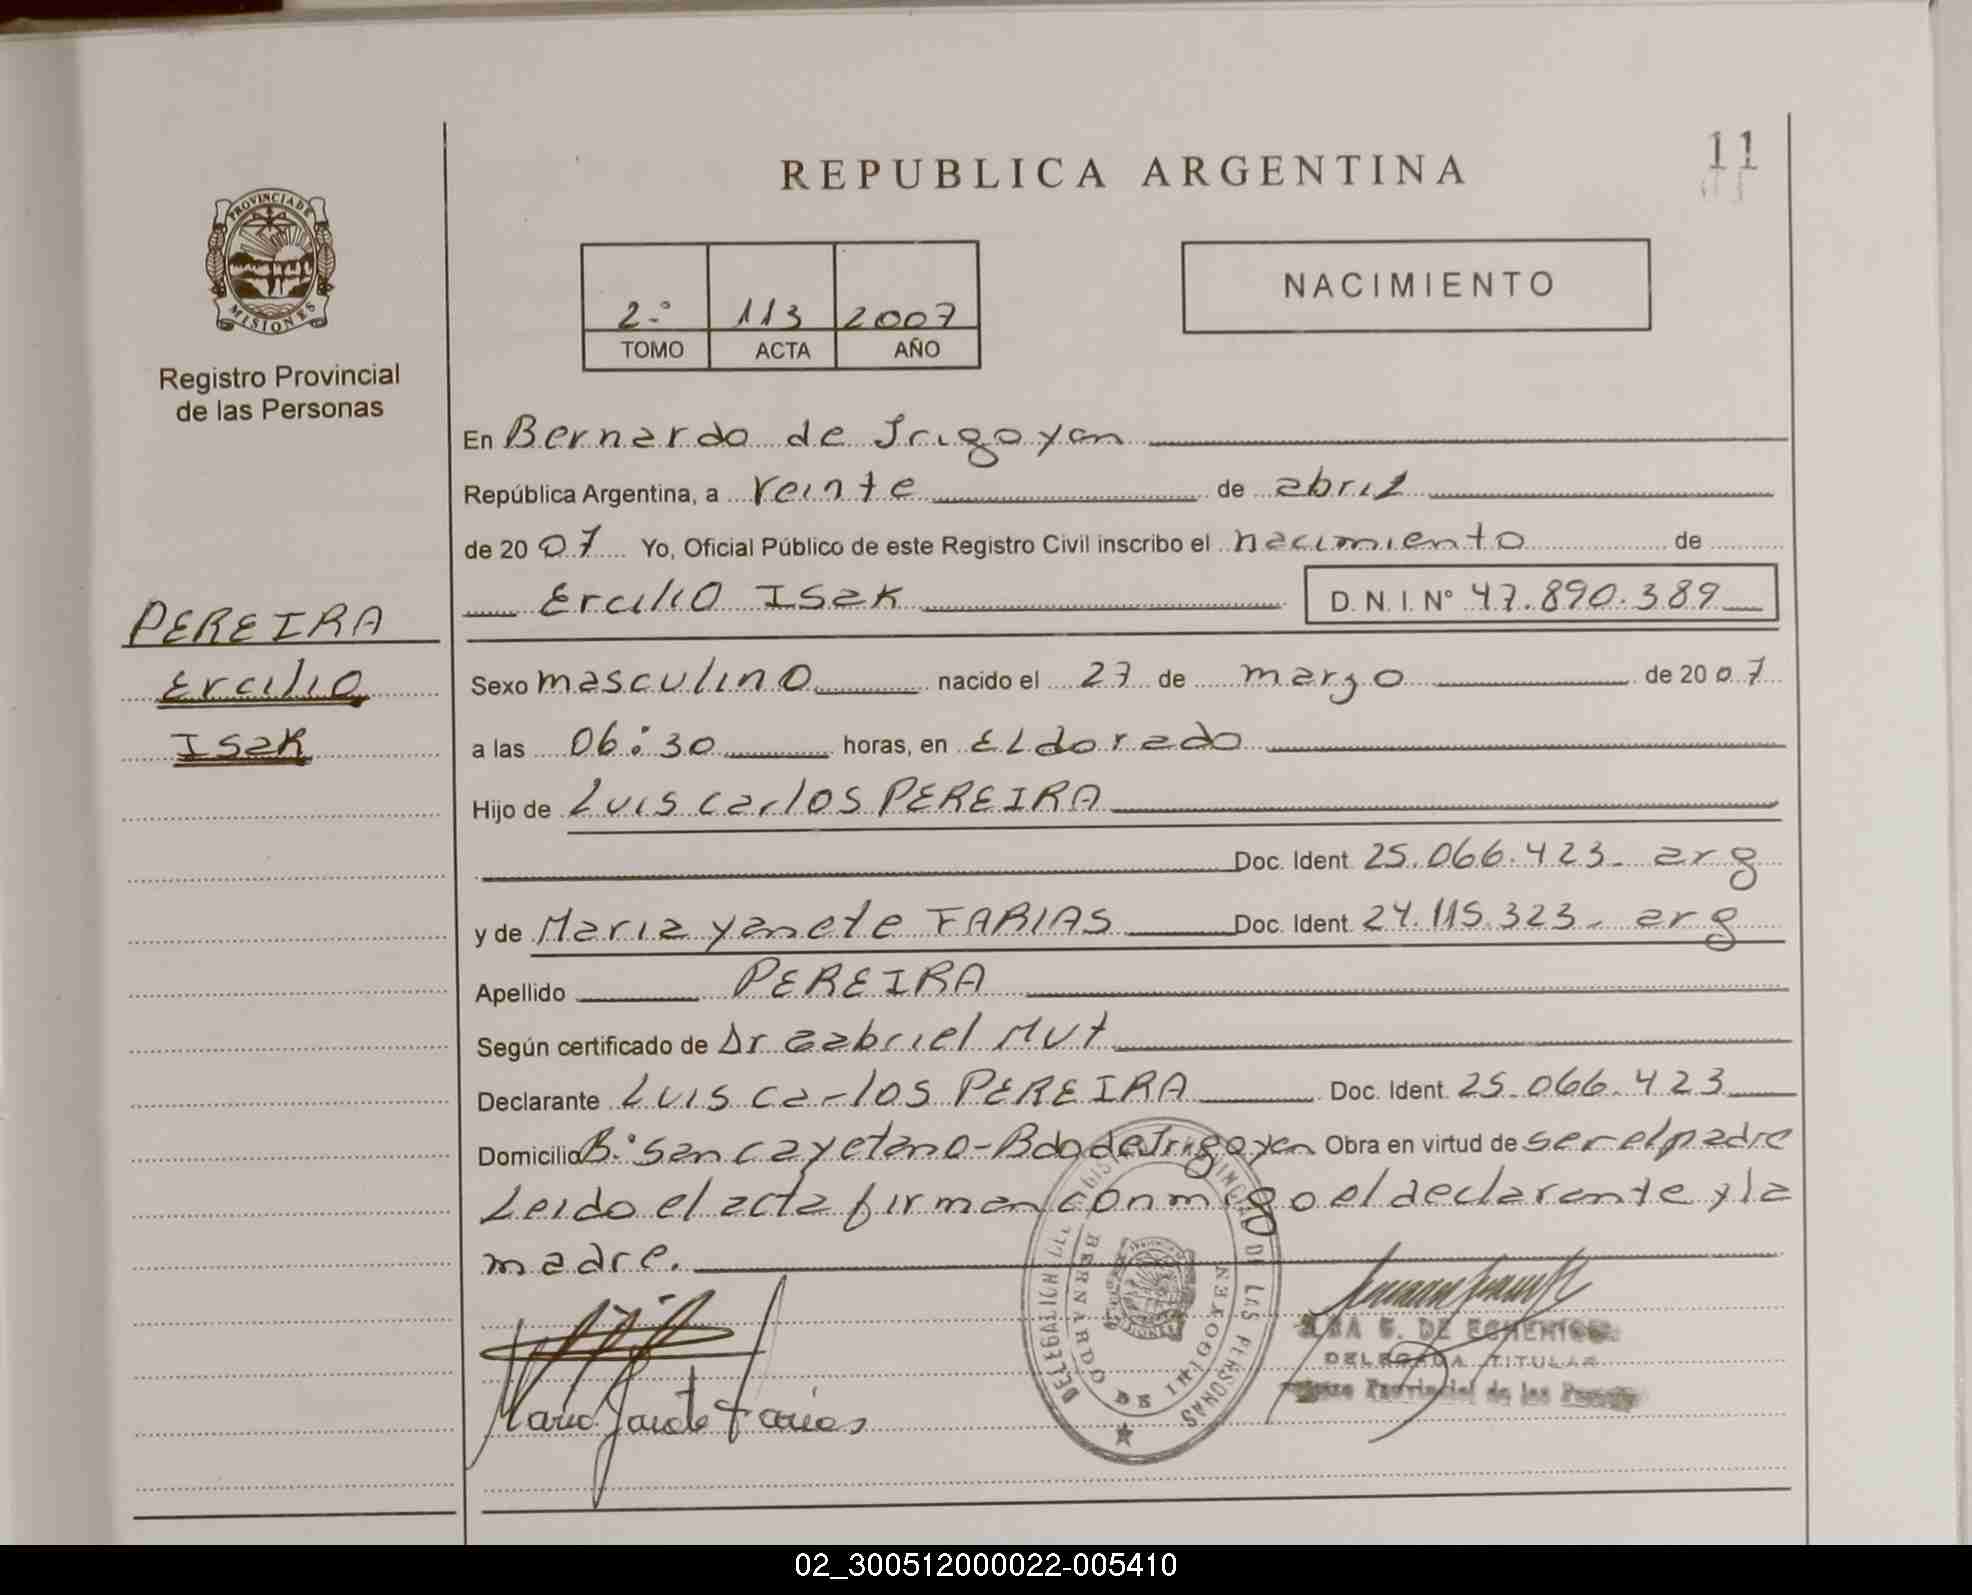 REPUBLICA ARGENTINA
11
PROVINCIA DE
MISIONES
Registro Provincial
de las Personas
2.° 113 2007
TOMO ACTA AÑO
NACIMIENTO
En Bernardo de Irigoyen
República Argentina, a veinte de abril
de 2007 Yo, Oficial Público de este Registro Civil inscribo el nacimiento de
Ercilio Isak D. N. I. N° 47.890.389
PEREIRA
Ercilio
Isak
Sexo masculino nacido el 27 de marzo de 2007
a las 06:30 horas, en ELdorado
Hijo de Luis Carlos PEREIRA
Doc. Ident. 25.066.423- arg
y de Maria yanete FARIAS Doc. Ident. 24.115.323- arg
Apellido PEREIRA
Según certificado de Dr Gabriel Mut
Declarante Luis Carlos PEREIRA Doc. Ident. 25.066.423
Domicilio B° San Cayetano-Bdo de Irigoyen Obra en virtud de ser el padre
Leido el acta firman conmigo el declarante y la
madre.
DELEGACION DEL REGISTRO PROVINCIAL DE LAS PERSONAS
BERNARDO DE IRIGOYEN
DE ECHENIQUE
DELEGADA TITULAR
Provincial de las
Maria Janete Farias
02_300512000022-005410